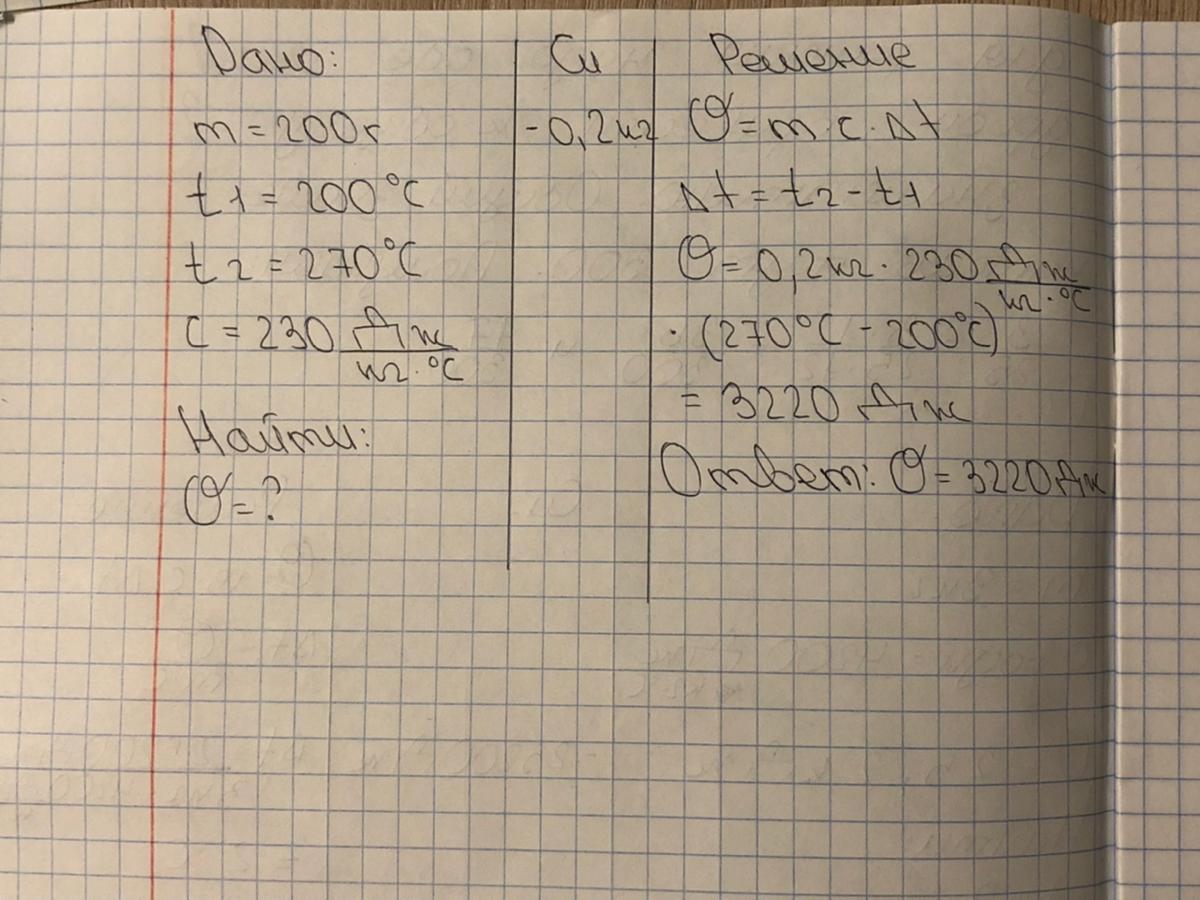 Дано:
m = 200г
t1 = 200°C
t2 = 270°C
c = 230 Дж/кг·°C
Найти:
Q = ?
Си
- 0,2кг
Решение
Q = m · c · Δt
Δt = t2 - t1
Q = 0,2кг · 230 Дж/кг·°C
· (270°C - 200°C)
= 3220 Дж
Ответ: Q = 3220Дж